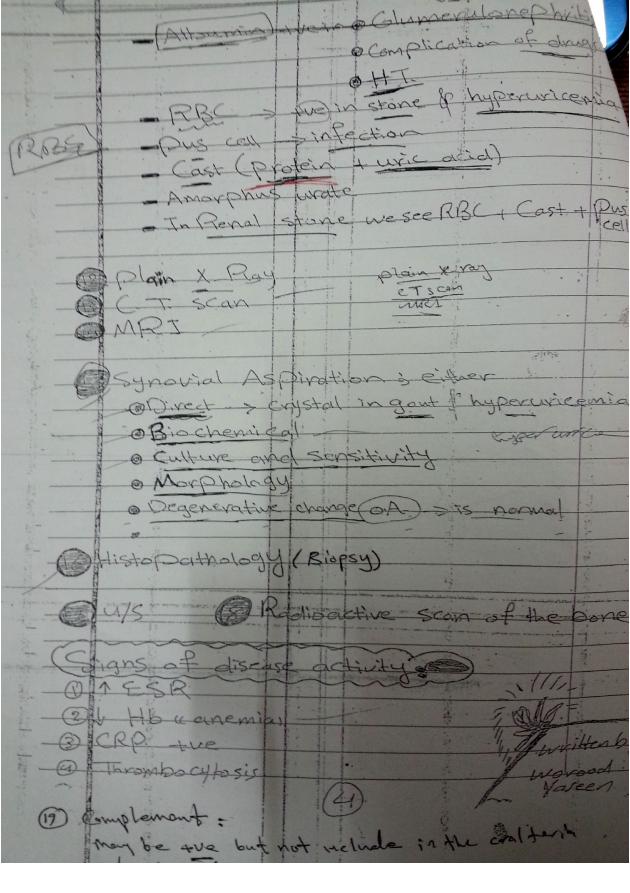 - Albumin +ve in ⊙ Glumerulonephritis
⊙ Complication of drugs
⊙ HT.
- RBC → +ve in stone & hyperuricemia
- pus cell → infection
- Cast (protein + uric acid)
- Amorphus urate
- In Renal stone we see RBC + Cast + Pus cell
Plain X Ray
C.T. Scan
MRI
plain x ray
CT scan
MRI
Synovial Aspiration is either
⊙ Direct → crystal in gout & hyperuricemia
⊙ Biochemical
⊙ Culture and sensitivity
⊙ Morphology
⊙ Degenerative change (O.A) → is normal
Histopathology (Biopsy)
U/S Radioactive scan of the bone
Signs of disease activity:
① ↑ ESR
② ↓ Hb anemia
③ CRP +ve
④ Thrombocytosis
written b
Worood
Yaseen
4
⑲ Complement:
may be +ve but not include in the